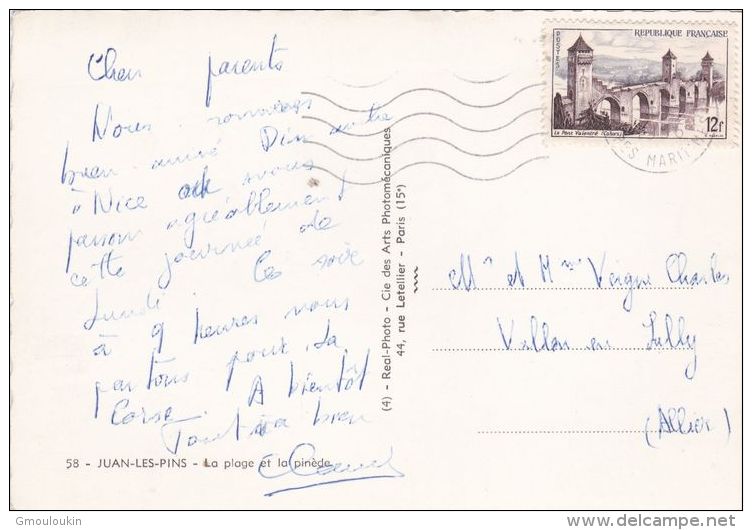 Chers parents
Nous sommes
bien arrivé Dimanche
à Nice et nous
passons agréablement
cette journée de
Lundi. Ce soir
à 9 heures nous
partons pour la
Corse. A bientôt
Tout va bien
58 - JUAN-LES-PINS - La plage et la pinède
(4) - Real-Photo - Cie des Arts Photomécaniques
44, rue Letellier - Paris (15e)
POSTES
REPUBLIQUE FRANÇAISE
Le Pont Valentré (Cahors)
12f
ES MARIT
Mr et Mme Veigne Charles
Vallon en Sully
(Allier)
Gmouloukin
delcampe.net